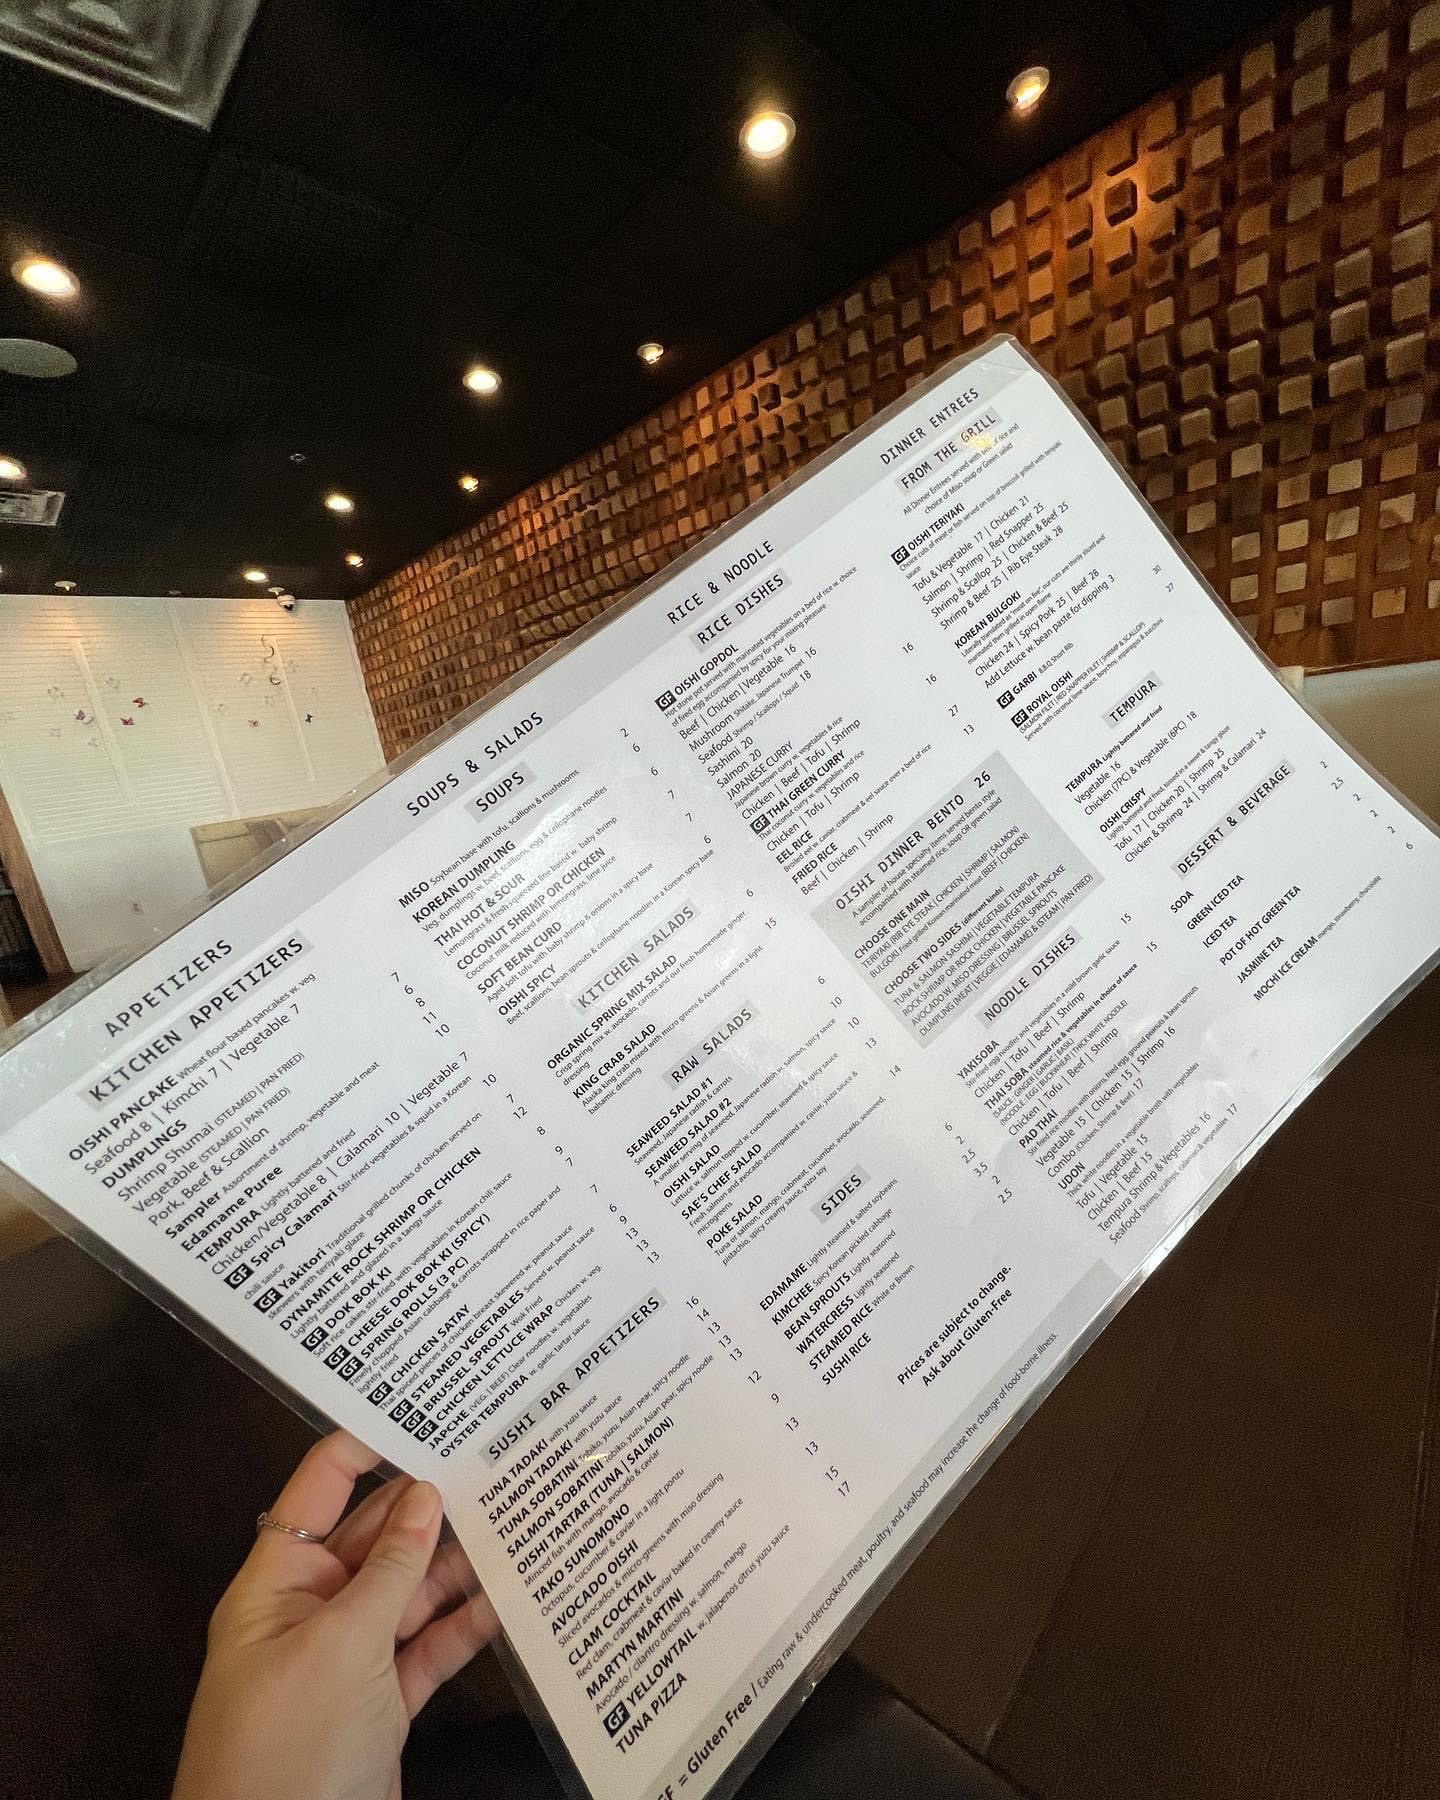 APPETIZERS
KITCHEN APPETIZERS
OISHI PANCAKE Wheat flour based pancakes w. veg
Seafood 8 | Kimchi 7 | Vegetable 7
DUMPLINGS
Shrimp Shumai (STEAMED | PAN FRIED) 7
Vegetable (STEAMED | PAN FRIED) 6
Pork, Beef & Scallion 8
Sampler Assortment of shrimp, vegetable and meat 11
Edamame Puree 10
TEMPURA Lightly battered and fried
Chicken/Vegetable 8 | Calamari 10 | Vegetable 7
GF Spicy Calamari Stir-fried vegetables & squid in a Korean 10
chili sauce
GF Yakitori Traditional grilled chunks of chicken served on 7
skewers with teriyaki glaze
DYNAMITE ROCK SHRIMP OR CHICKEN 12
Lightly battered and glazed in a tangy sauce
GF DOK BOK KI 8
Soft rice cakes stir-fried with vegetables in Korean chili sauce
GF CHEESE DOK BOK KI (SPICY) 9
GF SPRING ROLLS (3 PC) 7
Finely chopped Asian cabbage & carrots wrapped in rice paper and
lightly fried
GF CHICKEN SATAY 7
Thai spiced pieces of chicken breast skewered w. peanut sauce
GF STEAMED VEGETABLES Served w. peanut sauce 6
GF BRUSSEL SPROUT Wok Fried 9
GF CHICKEN LETTUCE WRAP Chicken w. veg. 13
JAPCHE (VEG. | BEEF) Clear noodles w. vegetables 13
OYSTER TEMPURA w. garlic tartar sauce 13
SUSHI BAR APPETIZERS
TUNA TADAKI with yuzu sauce 16
SALMON TADAKI with yuzu sauce 14
TUNA SOBATINI Tobiko, yuzu, Asian pear, spicy noodle 13
SALMON SOBATINI Tobiko, yuzu, Asian pear, spicy noodle 13
OISHI TARTAR (TUNA | SALMON) 13
Minced fish with mango, avocado & caviar
TAKO SUNOMONO 12
Octopus, cucumber & caviar in a light ponzu
AVOCADO OISHI 9
Sliced avocados & micro-greens with miso dressing
CLAM COCKTAIL 13
Red clam, crabmeat & caviar baked in creamy sauce
MARTYN MARTINI 13
Avocado / cilantro dressing w. salmon, mango
GF YELLOWTAIL w. jalapenos citrus yuzu sauce 15
TUNA PIZZA 17
SOUPS & SALADS
SOUPS
MISO Soybean base with tofu, scallions & mushrooms 2
KOREAN DUMPLING 6
Veg. dumplings w. beef, scallions, egg & cellophane noodles
THAI HOT & SOUR 6
Lemongrass & fresh squeezed lime based w. baby shrimp
COCONUT SHRIMP OR CHICKEN 7
Coconut milk reduced with lemongrass, lime juice
SOFT BEAN CURD 7
Aged soft tofu with baby shrimp & onions in a spicy base
OISHI SPICY 6
Beef, scallions, bean sprouts & cellophane noodles in a Korean spicy base
KITCHEN SALADS
ORGANIC SPRING MIX SALAD 6
Crisp spring mix w. avocado, carrots and our fresh homemade ginger
dressing
KING CRAB SALAD 15
Alaska king crab mixed with micro greens & Asian greens in a light
balsamic dressing
RAW SALADS
SEAWEED SALAD #1 6
Seaweed, Japanese radish & carrots
SEAWEED SALAD #2 10
A smaller serving of seaweed, Japanese radish w. salmon, spicy sauce
OISHI SALAD 10
Lettuce w. salmon topped w. cucumber, seaweed & spicy sauce
SAE'S CHEF SALAD 13
Fresh salmon and avocado accompanied w. caviar, yuzu sauce &
microgreens
POKE SALAD 14
Tuna or salmon, mango, crabmeat, cucumber, avocado, seaweed,
pistachio, spicy creamy sauce, yuzu soy
SIDES
EDAMAME Lightly steamed & salted soybeans 6
KIMCHEE Spicy Korean pickled cabbage 2
BEAN SPROUTS Lightly seasoned 2.5
WATERCRESS Lightly seasoned 3.5
STEAMED RICE White or Brown 2
SUSHI RICE 2.5
RICE & NOODLE
RICE DISHES
GF OISHI GOPDOL
Hot stone pot served with marinated vegetables on a bed of rice w. choice
of fried egg accompanied by spicy for your mixing pleasure
Beef | Chicken | Vegetable 16
Mushroom Shitake, Japanese Trumpet 16
Seafood Shrimp / Scallops / Squid 18
Sashimi 20
Salmon 20
JAPANESE CURRY 16
Japanese brown curry w. vegetables & rice
Chicken | Beef | Tofu | Shrimp
GF THAI GREEN CURRY 16
Thai coconut curry w. vegetables and rice
Chicken | Tofu | Shrimp
EEL RICE 27
Broiled eel w. caviar, crabmeat & eel sauce over a bed of rice
FRIED RICE 13
Beef | Chicken | Shrimp
OISHI DINNER BENTO 26
A sampler of house specialty items served bento style
accompanied with steamed rice, soup OR green salad
CHOOSE ONE MAIN
TERIYAKI (RIB EYE STEAK | CHICKEN | SHRIMP | SALMON)
BULGOKI Fried grilled Korean marinated meat (BEEF | CHICKEN)
CHOOSE TWO SIDES (different kinds)
TUNA & SALMON SASHIMI | VEGETABLE TEMPURA
ROCK SHRIMP OR ROCK CHICKEN | VEGETABLE PANCAKE
AVOCADO W. MISO DRESSING | BRUSSEL SPROUTS
DUMPLING (MEAT | VEGGIE | EDAMAME) & (STEAM | PAN FRIED)
NOODLE DISHES
YAKISOBA 15
Stir-fried egg noodles and vegetables in a mild brown garlic sauce
Chicken | Tofu | Beef | Shrimp
THAI SOBA steamed rice & vegetables in choice of sauce 15
(SAUCE: GINGER | GARLIC | BASIL)
(NOODLE: EGG | BUCKWHEAT | THICK WHITE NOODLE)
Chicken | Tofu | Beef | Shrimp
PAD THAI
Stir fried rice noodles with onions, fried egg, ground peanuts & bean sprouts
Vegetable 15 | Chicken 15 | Shrimp 16
Combo (Chicken, Shrimp & Beef) 17
UDON
Thick white noodles in a vegetable broth with vegetables
Tofu | Vegetable 15
Chicken | Beef 15
Tempura Shrimp & Vegetables 16
Seafood Shrimp, scallops, calamari & vegetables 17
Prices are subject to change.
Ask about Gluten-Free
DINNER ENTREES
FROM THE GRILL
All Dinner Entrees served with of rice and
choice of Miso soup or Green salad
GF OISHI TERIYAKI
Choice cuts of meat or fish served on top of broccoli grilled with teriyaki
sauce
Tofu & Vegetable 17 | Chicken 21
Salmon | Shrimp | Red Snapper 25
Shrimp & Scallop 25 | Chicken & Beef 25
Shrimp & Beef 25 | Rib Eye Steak 28
KOREAN BULGOKI
Literally translated as "meat on fire", our cuts are thinly sliced and
marinated then grilled in open flame
Chicken 24 | Spicy Pork 25 | Beef 28
Add Lettuce w. bean paste for dipping 3
GF GARBI B.B.Q Short Rib 30
GF ROYAL OISHI 27
(SALMON FILET | RED SNAPPER FILET | SHRIMP & SCALLOP)
Served with coconut lime sauce, boychoy, asparagus & zucchini
TEMPURA
TEMPURA Lightly battered and fried
Vegetable 16
Chicken (7PC) & Vegetable (6PC) 18
OISHI CRISPY
Lightly battered and fried, tossed in a sweet & tangy glaze
Tofu 17 | Chicken 20 | Shrimp 25
Chicken & Shrimp 24 | Shrimp & Calamari 24
DESSERT & BEVERAGE
SODA 2
GREEN ICED TEA 2.5
ICED TEA 2
POT OF HOT GREEN TEA 2
JASMINE TEA 2
MOCHI ICE CREAM mango, strawberry, chocolate 6
= Gluten Free / Eating raw & undercooked meat, poultry, and seafood may increase the change of food-borne illness.